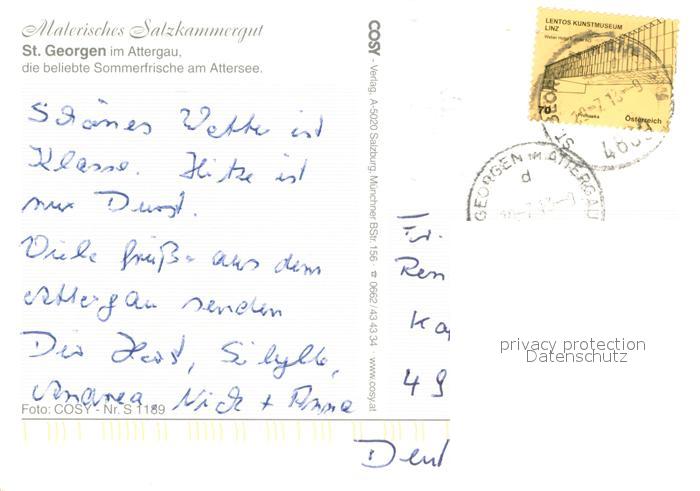 Malerisches Salzkammergut
St. Georgen im Attergau,
die beliebte Sommerfrische am Attersee.
Schönes Wetter ist
Klasse. Hitze ist
nur Durst.
Viele Grüße aus dem
Attergau senden
Dir Horst, Sibylle,
Andrea, Nick + Anna
Foto: COSY - Nr. S 1189
COSY - Verlag, A-5020 Salzburg, Münchner BStr. 156 - ☎ 0662/43 43 34 www.cosy.at
LENTOS KUNSTMUSEUM
LINZ
Österreich
ST. GEORGEN IM ATTERGAU
d
Fr.
Ren
Ka
49
Deut
privacy protection
Datenschutz